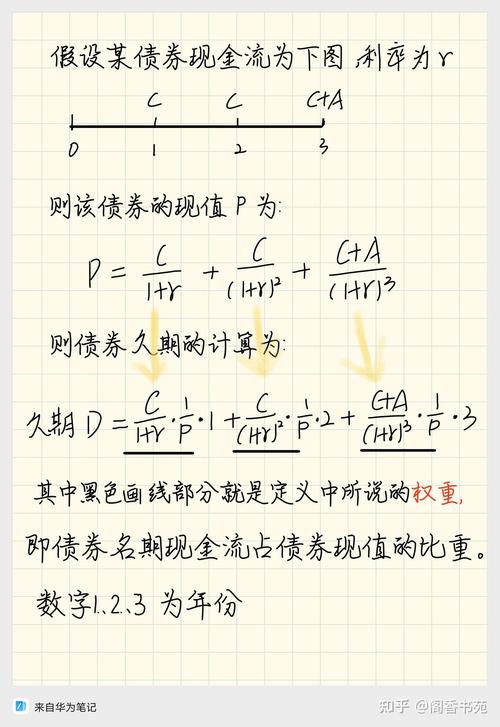 假设某债券现金流为下图,利率为r
C C C+A
0 1 2 3
则该债券的现值 P 为:
P = C/(1+r) + C/(1+r)² + (C+A)/(1+r)³
则债券久期的计算为:
久期 D = C/(1+r)·1/P·1 + C/(1+r)²·1/P·2 + (C+A)/(1+r)³·1/P·3
其中黑色画线部分就是定义中所说的权重,
即债券各期现金流占债券现值的比重。
数字1、2、3 为年份
来自华为笔记
知乎 @阁香书苑